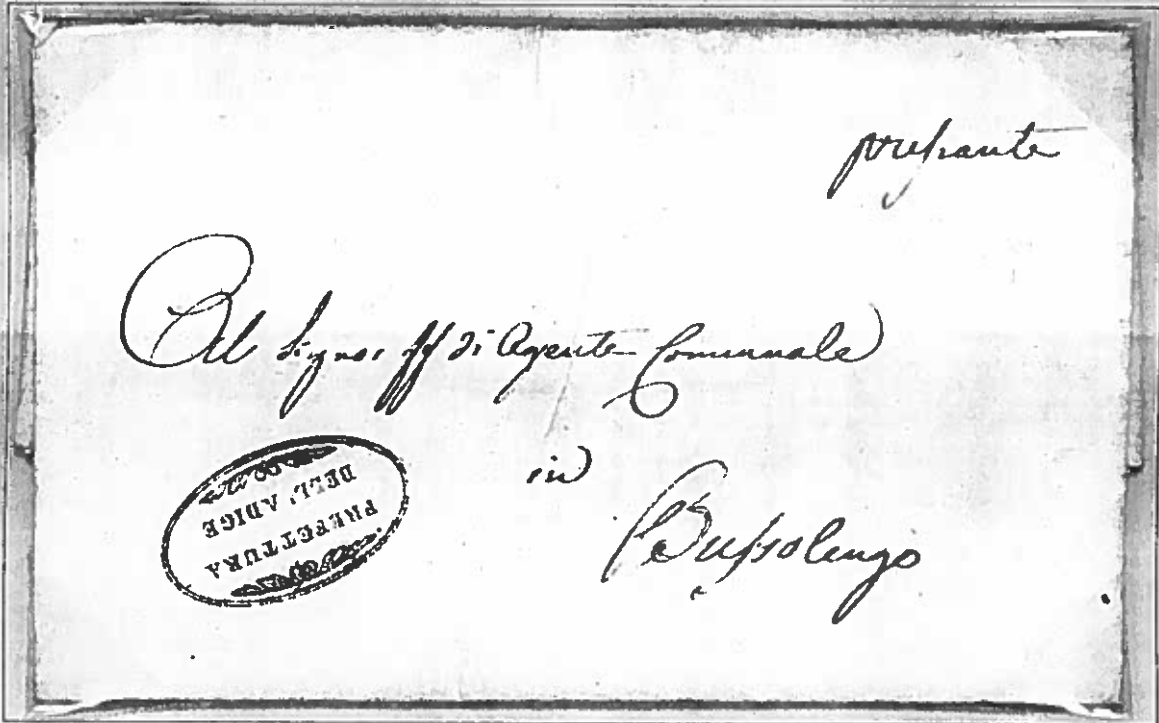 pressante
Al Signor ff di Agente Comunale
in
Bussolengo
PREFETTURA
DELL' ADIGE